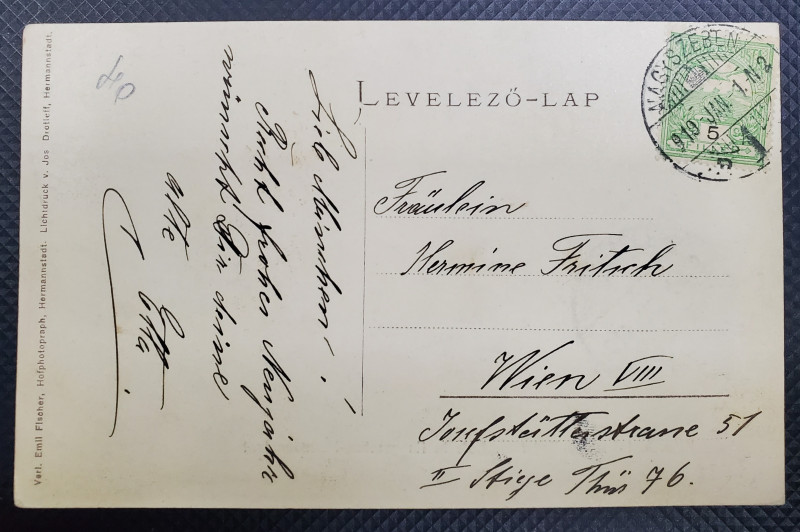 LEVELEZŐ-LAP
NAGYSZEBEN
919 JAN. 1. N2
5
Fräulein
Hermine Fritsch
Wien VIII
Josefstätterstrasse 51
II Stige Thür 76.
Lieb Minchen!
Recht frohes Neujahr
wünscht Dir deine
alte
Etta.
Verl. Emil Fischer, Hofphotograph, Hermannstadt. Lichtdruck v. Jos Drotleff, Hermannstadt.